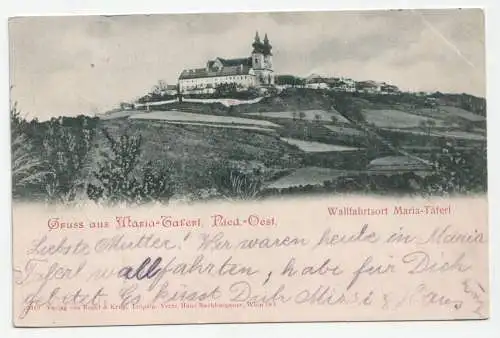 Gruss aus Maria-Taferl, Nied.-Oest.
Wallfahrtsort Maria-Täferl
Liebste Mutter! Wir waren heute in Maria
Taferl wallfahrten, habe für Dich
gebetet. Es küsst Dich Mizzi & Hans
Verlag von Regel & Krug, Leipzig. Vertr. Hans Nachbargauer, Wien